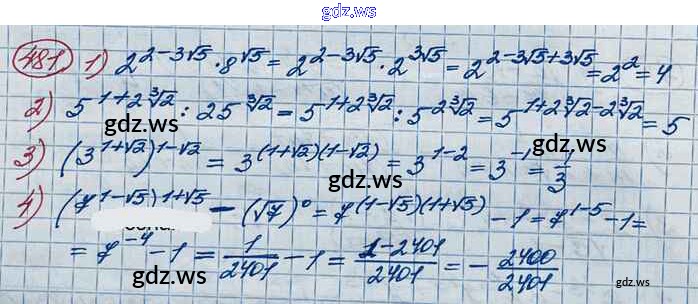 gdz.ws
gdz.ws
481. 1) 2^(2-3√5) · 8^(√5) = 2^(2-3√5) · 2^(3√5) = 2^(2-3√5+3√5) = 2^2 = 4
2) 5^(1+2∛2) : 25^(∛2) = 5^(1+2∛2) : 5^(2∛2) = 5^(1+2∛2-2∛2) = 5
gdz.ws
gdz.ws
3) (3^(1+√2))^(1-√2) = 3^((1+√2)(1-√2)) = 3^(1-2) = 3^(-1) = 1/3
gdz.ws
4) (7^(1-√5))^(1+√5) - (√7)^0 = 7^((1-√5)(1+√5)) - 1 = 7^(1-5) - 1 =
= 7^(-4) - 1 = 1/2401 - 1 = (1-2401)/2401 = - 2400/2401
gdz.ws
gdz.ws
gdz.ws